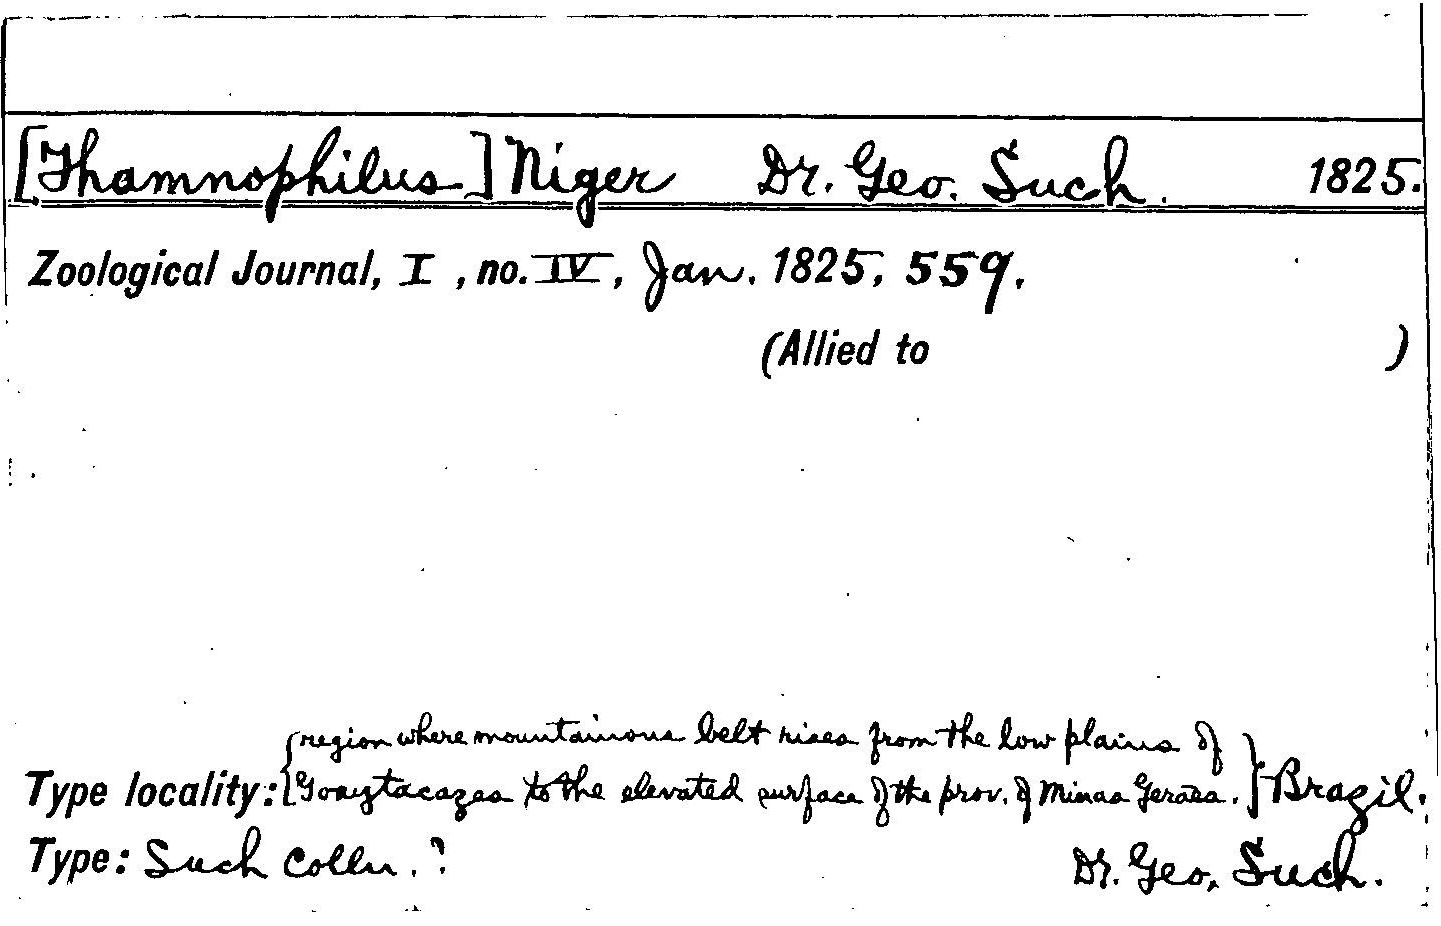 [Thamnophilus] Niger Dr. Geo. Such. 1825.
Zoological Journal, I, no. IV, Jan. 1825, 559.
(Allied to )
region where mountainous belt rises from the low plains of
Type locality: {Goaytacazes to the elevated surface of the prov. of Minas Geraes.} Brazil.
Type: Such Colln. ? Dr. Geo. Such.